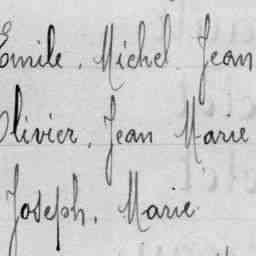 Emile, Michel Jean
Olivier, Jean Marie
Joseph, Marie